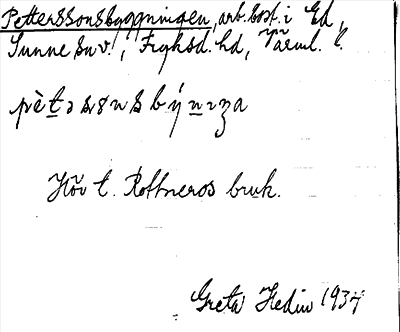 Petterssonsbyggningen, arb.bost. i Ed,
Sunne sn v., Fryksd. hd, Värml. l.
pètəsɷnsbýnɩŋa
Hör t. Rottneros bruk.
Greta Hedin 1937